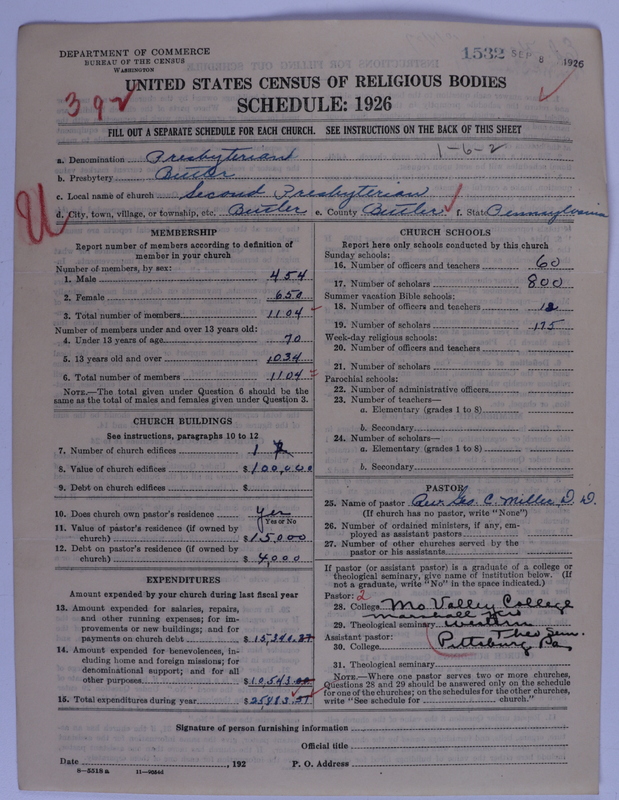 DEPARTMENT OF COMMERCE
BUREAU OF THE CENSUS
WASHINGTON
1532 SEP 8 1926
UNITED STATES CENSUS OF RELIGIOUS BODIES
392
SCHEDULE: 1926
FILL OUT A SEPARATE SCHEDULE FOR EACH CHURCH. SEE INSTRUCTIONS ON THE BACK OF THIS SHEET
1-6-2
a. Denomination Presbyterian
b. Presbytery Butler
c. Local name of church Second Presbyterian
U
d. City, town, village, or township, etc. Butler e. County Butler f. State Pennsylvania
MEMBERSHIP
Report number of members according to definition of
member in your church
Number of members, by sex:
1. Male 454
2. Female 650
3. Total number of members 1104
Number of members under and over 13 years old:
4. Under 13 years of age 70
5. 13 years old and over 1034
6. Total number of members 1104
NOTE.—The total given under Question 6 should be the
same as the total of males and females given under Question 3.
CHURCH BUILDINGS
See instructions, paragraphs 10 to 12
7. Number of church edifices 1
8. Value of church edifices $100,000
9. Debt on church edifices $
10. Does church own pastor's residence Yes
Yes or No
11. Value of pastor's residence (if owned by
church) $15,000
12. Debt on pastor's residence (if owned by
church) $4000
EXPENDITURES
Amount expended by your church during last fiscal year
13. Amount expended for salaries, repairs,
and other running expenses; for im-
provements or new buildings; and for
payments on church debt $15,340.37
14. Amount expended for benevolences, in-
cluding home and foreign missions; for
denominational support; and for all
other purposes $10,543.00
15. Total expenditures during year $25883.37
CHURCH SCHOOLS
Report here only schools conducted by this church
Sunday schools:
16. Number of officers and teachers 60
17. Number of scholars 800
Summer vacation Bible schools:
18. Number of officers and teachers 12
19. Number of scholars 175
Week-day religious schools:
20. Number of officers and teachers
21. Number of scholars
Parochial schools:
22. Number of administrative officers
23. Number of teachers—
a. Elementary (grades 1 to 8)
b. Secondary
24. Number of scholars—
a. Elementary (grades 1 to 8)
b. Secondary
PASTOR
25. Name of pastor Rev. Geo. C. Miller, D. D.
(If church has no pastor, write "None")
26. Number of ordained ministers, if any, em-
ployed as assistant pastors
27. Number of other churches served by the
pastor or his assistants
If pastor (or assistant pastor) is a graduate of a college or
theological seminary, give name of institution below. (If
not a graduate, write "No" in the space indicated.)
Pastor: 2
28. College Mo Valley College
Marshall Mo
29. Theological seminary Western
Theo Sem.
Assistant pastor:
30. College Pittsburg Pa
31. Theological seminary
NOTE.—Where one pastor serves two or more churches,
Questions 28 and 29 should be answered only on the schedule
for one of the churches; on the schedules for the other churches,
write "See schedule for church."
Signature of person furnishing information
Official title
Date , 192 P. O. Address
8-5518a 11-9054d